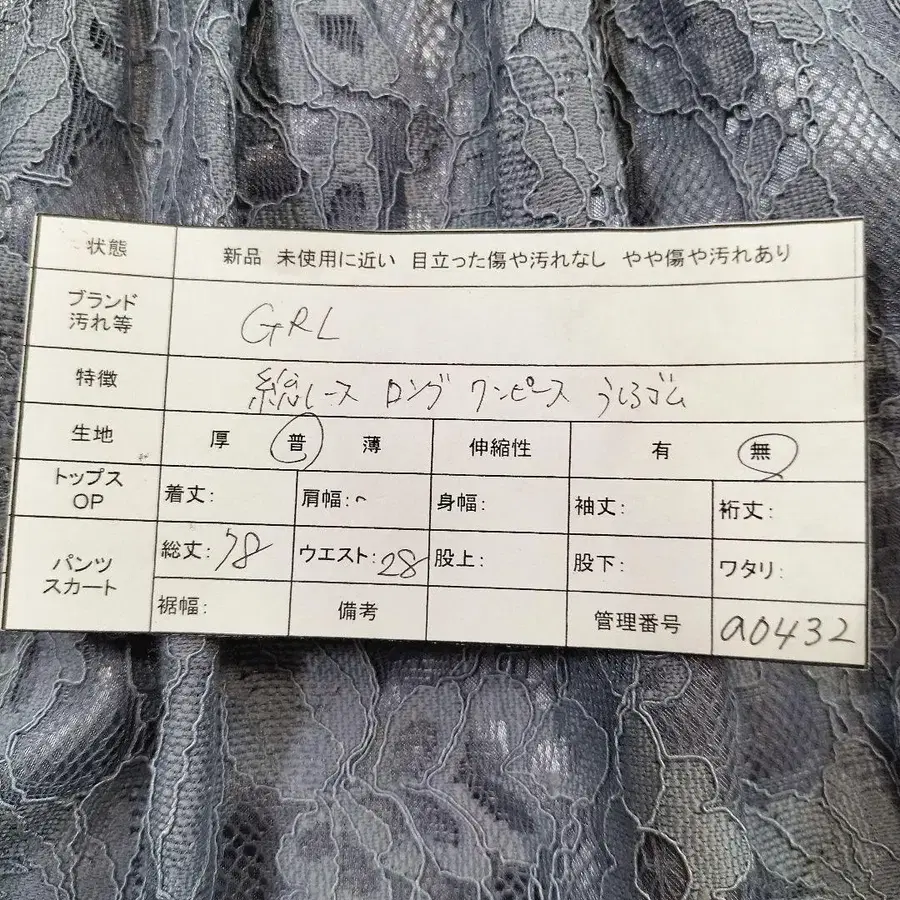 状態 新品 未使用に近い 目立った傷や汚れなし やや傷や汚れあり
ブランド
汚れ等 GRL
特徴 総レース ロング ワンピース うしろゴム
生地 厚 普 薄 伸縮性 有 無
トップス
OP 着丈: 肩幅: 身幅: 袖丈: 裄丈:
パンツ
スカート 総丈:78 ウエスト:28 股上: 股下: ワタリ:
裾幅: 備考 管理番号 a0432